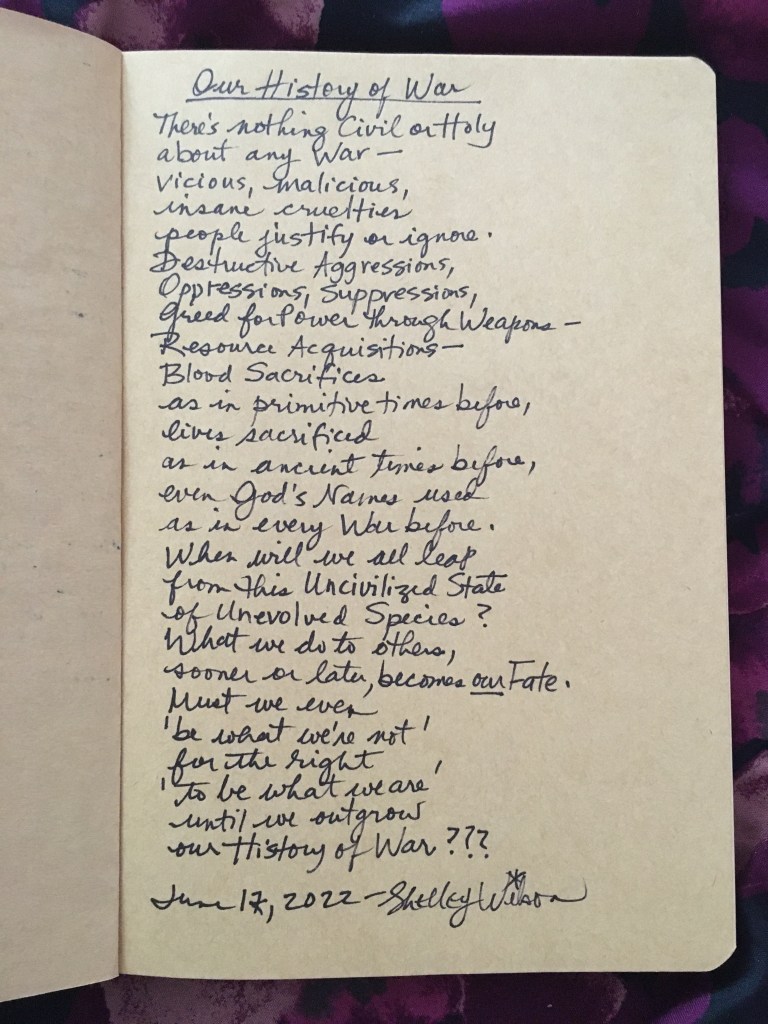 Our History of War
There's nothing Civil or Holy
about any War —
vicious, malicious,
insane cruelties
people justify or ignore.
Destructive Aggressions,
Oppressions, Suppressions,
Greed for Power through Weapons —
Resource Acquisitions —
Blood Sacrifices
as in primitive times before,
lives sacrificed
as in ancient times before,
even God's Names used
as in every War before.
When will we all leap
from this Uncivilized State
of Unevolved Species?
What we do to others,
sooner or later, becomes our Fate.
Must we ever
'be what we're not'
for the right
'to be what we are'
until we outgrow
our History of War???
June 17, 2022 — Shelley Wilson